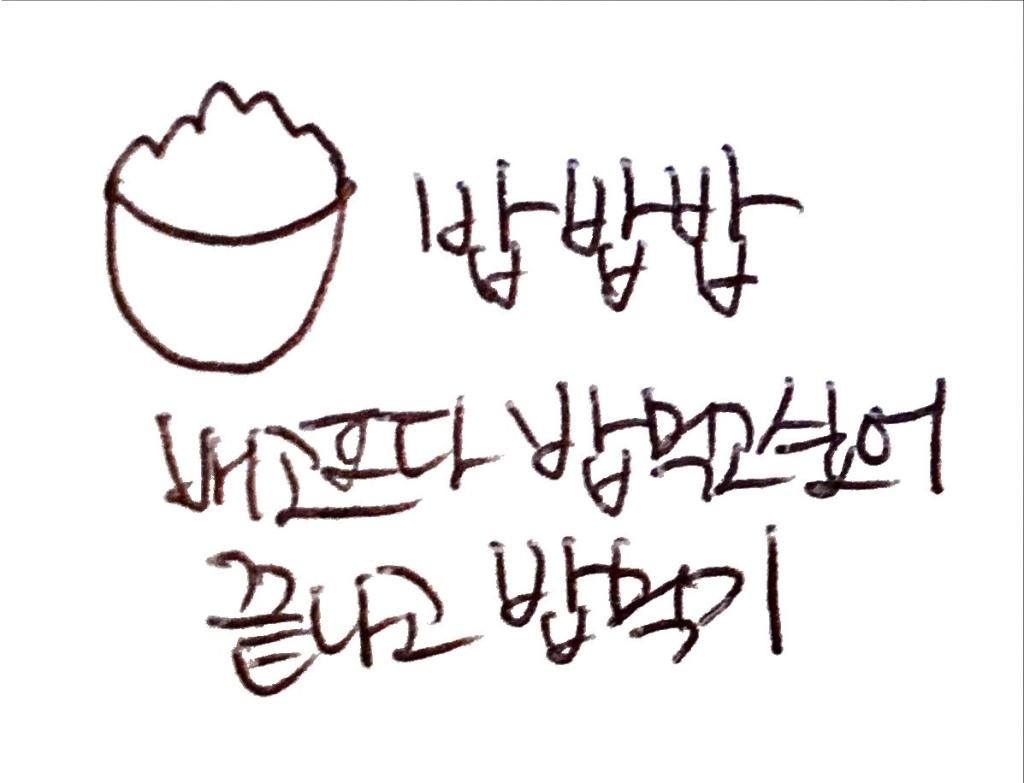 밥밥밥
배고프다 밥먹고싶어
끝나고 밥먹기